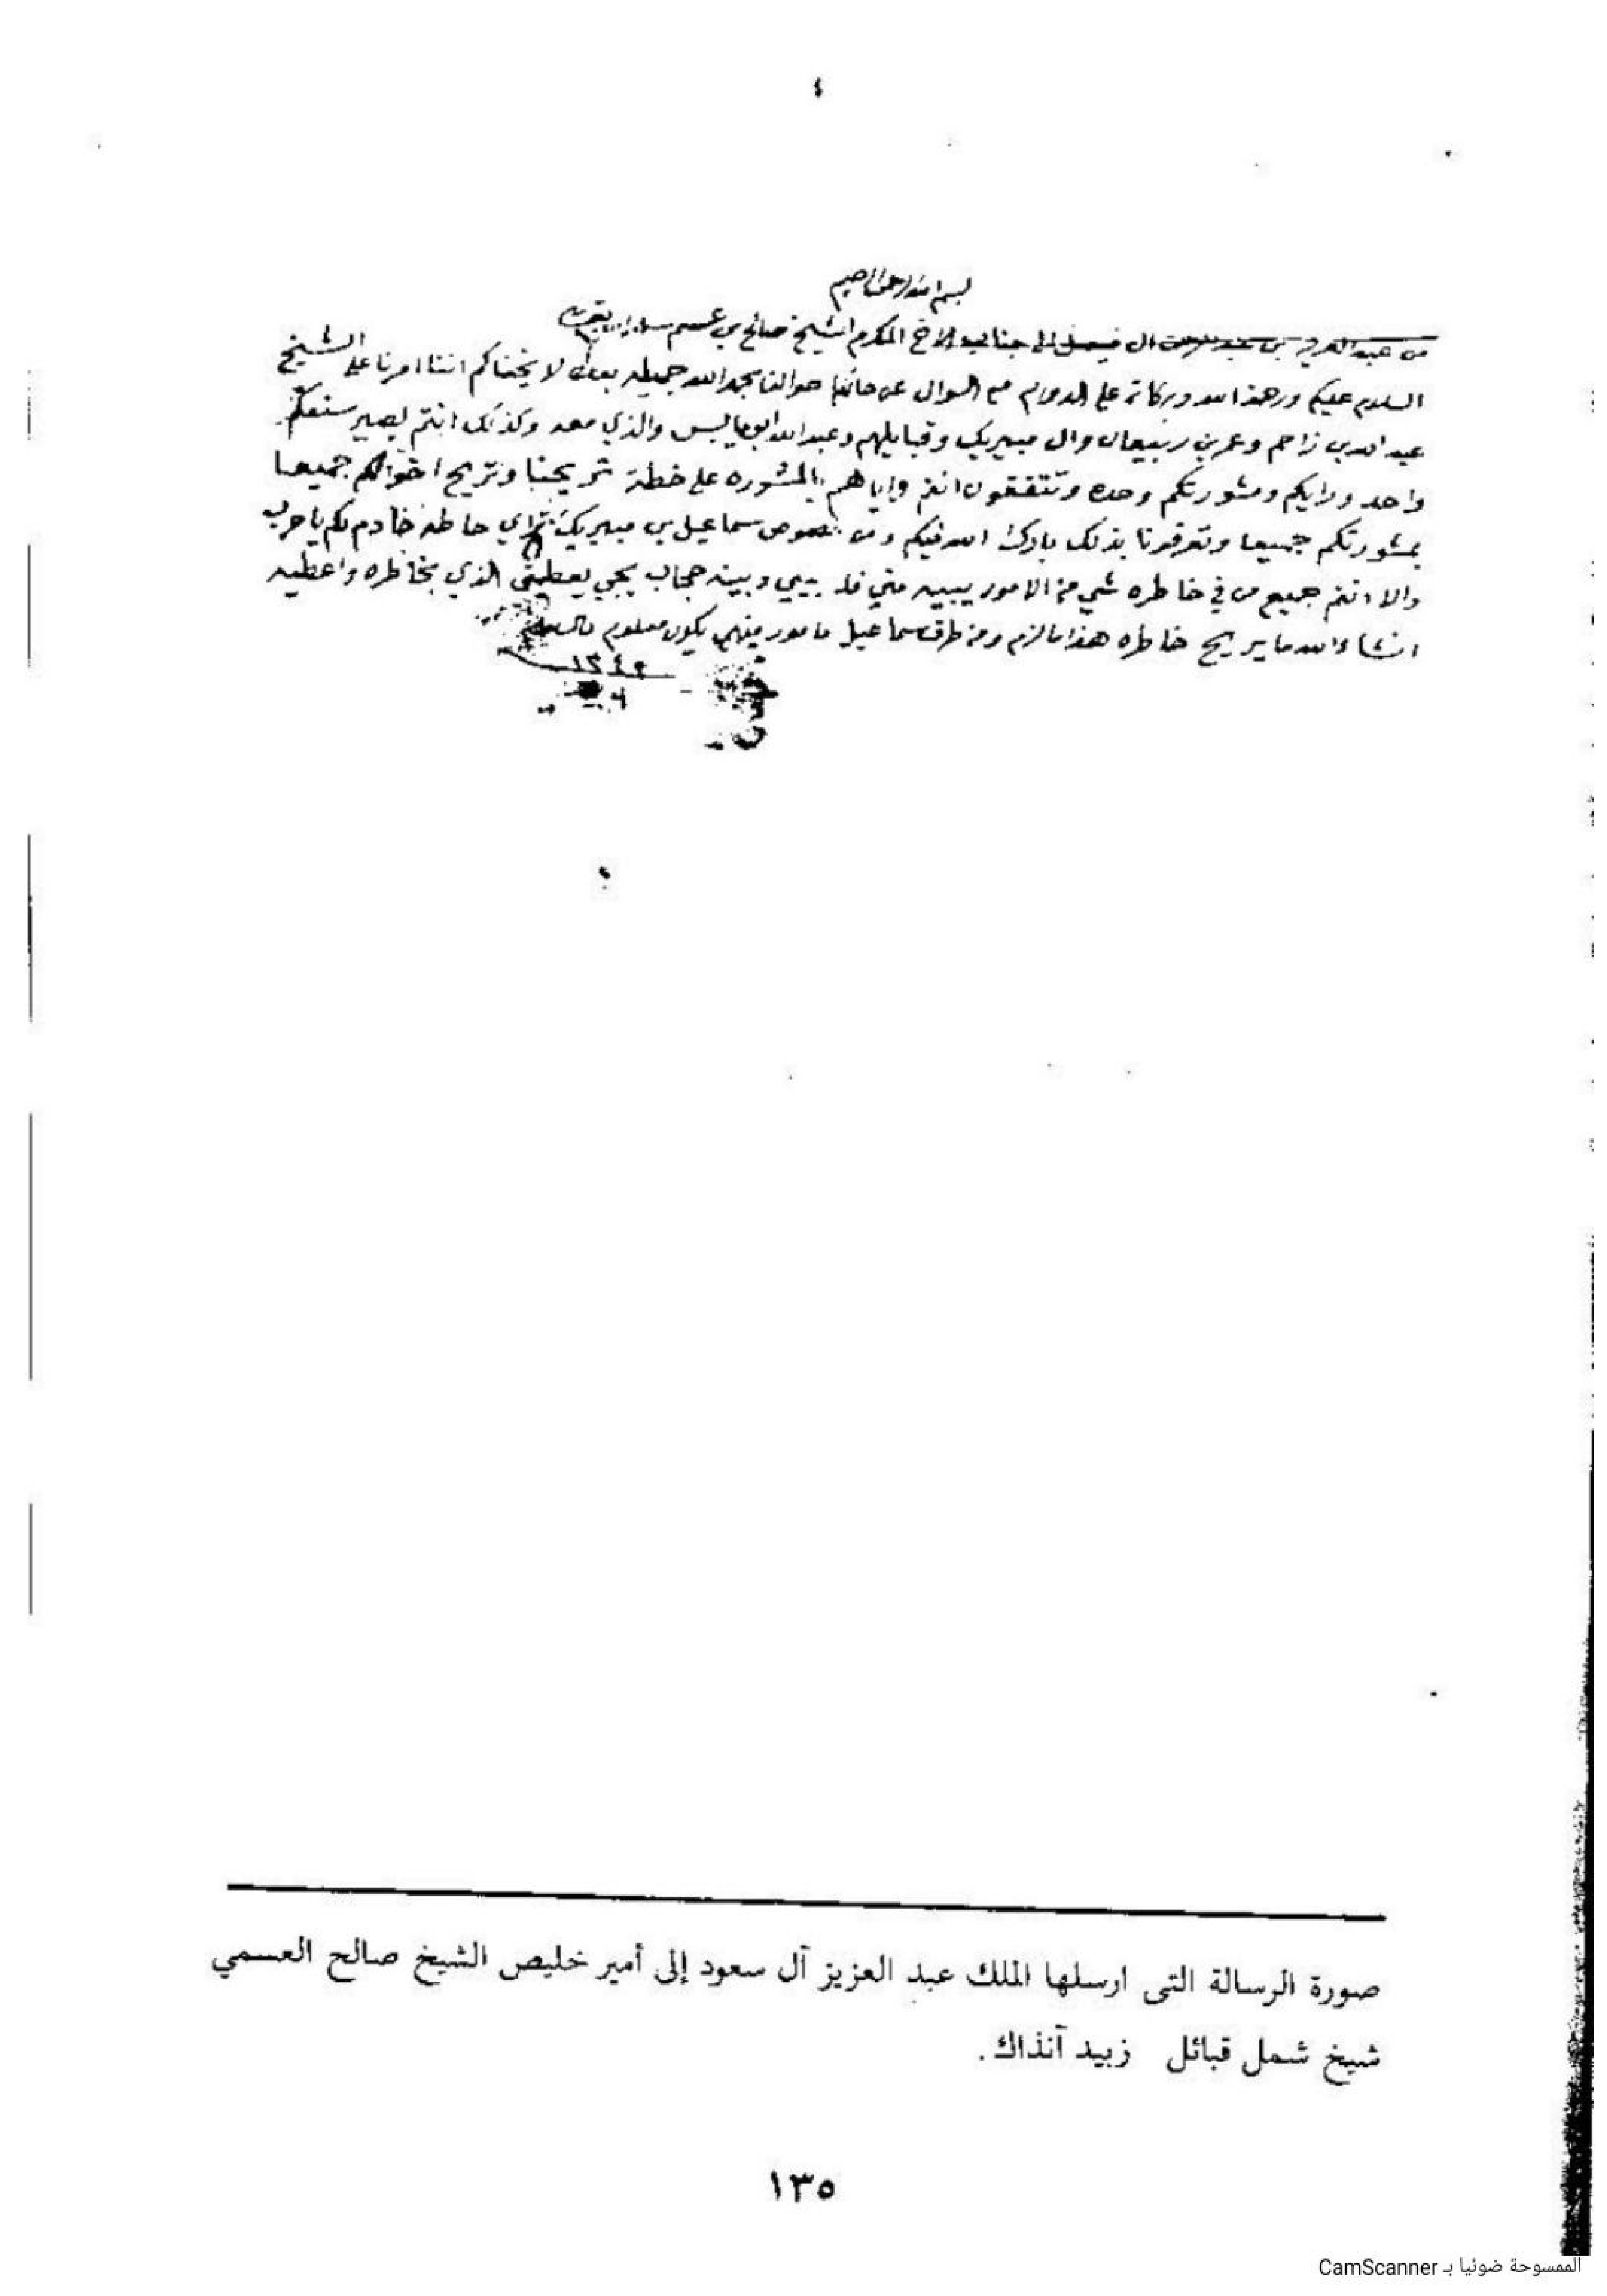 بسم الله الرحمن الرحيم
من عبد العزيز بن عبد الرحمن ال فيصل الى جناب الاخ المكرم الشيخ صالح بن عسم سلمه الله
السلام عليكم ورحمة الله وبركاته على الدوام مع السوال عن حالكم احوالنا بحمد الله جميله بعده لا يخفاكم اننا امرنا على الشيخ
عبد الله بن زاحم وعمر بن ربيعان وال مبيريك وقبايلهم وعبد الله والذي معه وكذلك انتم يصير
واحد ورايكم ومشورتكم وحده وتتفقون انتم واياهم بالمشوره على خطة تريحنا وتريح اخوانكم جميعا
بمشورتكم جميعا وتعرفونا بذلك بارك الله فيكم ومن خصوص سماعيل بن مبيريك تراي حاطه خادم لكم يا حرب
والا انتم جميع من في خاطره شي من الامور يبيه مني فلا بيني وبينه حجاب يجي يعطيني الذي بخاطره واعطيه
انشاء الله ما يريح خاطره هذا مالزم ومن طرف سماعيل مامور منهي يكون معلوم والسلام
صورة الرسالة التى ارسلها الملك عبد العزيز آل سعود إلى أمير خليص الشيخ صالح العسمي
شيخ شمل قبائل زبيد آنذاك.
١٣٥
الممسوحة ضوئيا بـ CamScanner